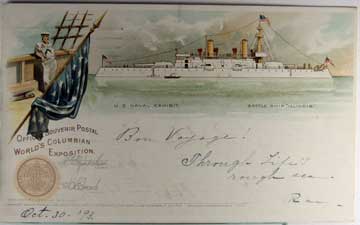 U.S. NAVAL EXHIBIT. BATTLE SHIP "ILLINOIS"
OFFICIAL SOUVENIR POSTAL
WORLD'S COLUMBIAN
EXPOSITION.
Bon Voyage!
Through Life's
rough sea
Oct. 30-'93.